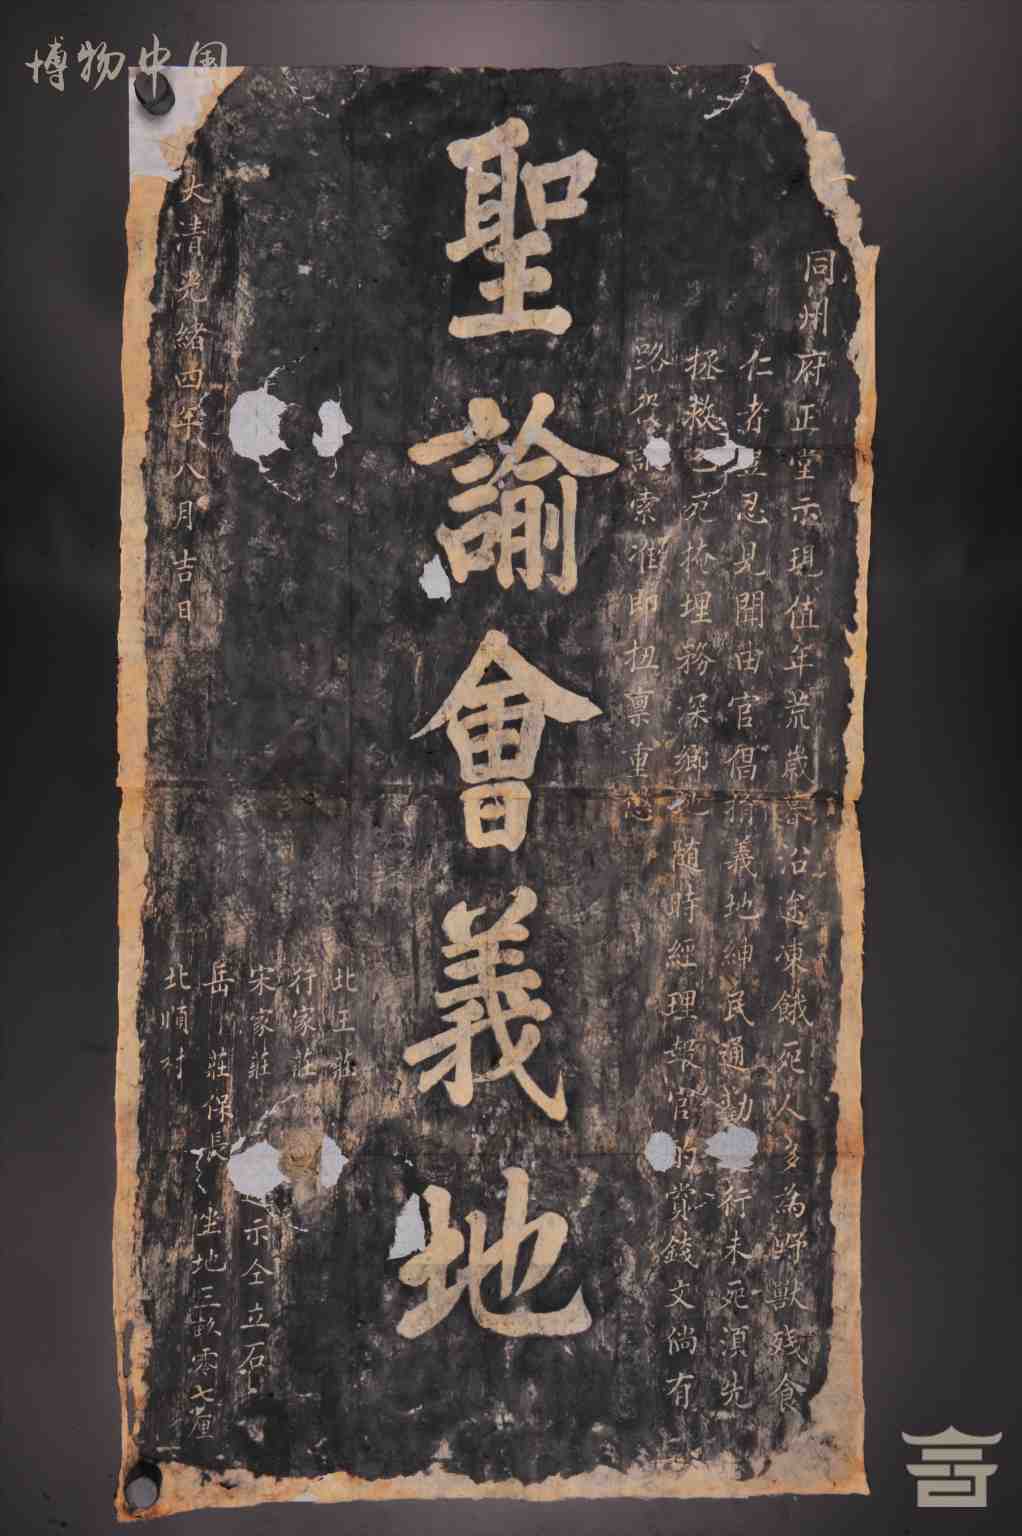 博物中国
同州府正堂示現值年荒歲 沿途凍餓死人多為野獸残食
仁者豈忍見聞由官倡捐義地紳民通勸 行未死須先
拯救已死掩埋務深鄉 随時經理報官的賞錢文倘有
路 索准即扭禀重
聖諭會義地
北王莊
行家莊
宋家莊
岳 莊保長
北順村
示仝立石
坐地三畝零七厘
大清光緒四年八月吉日